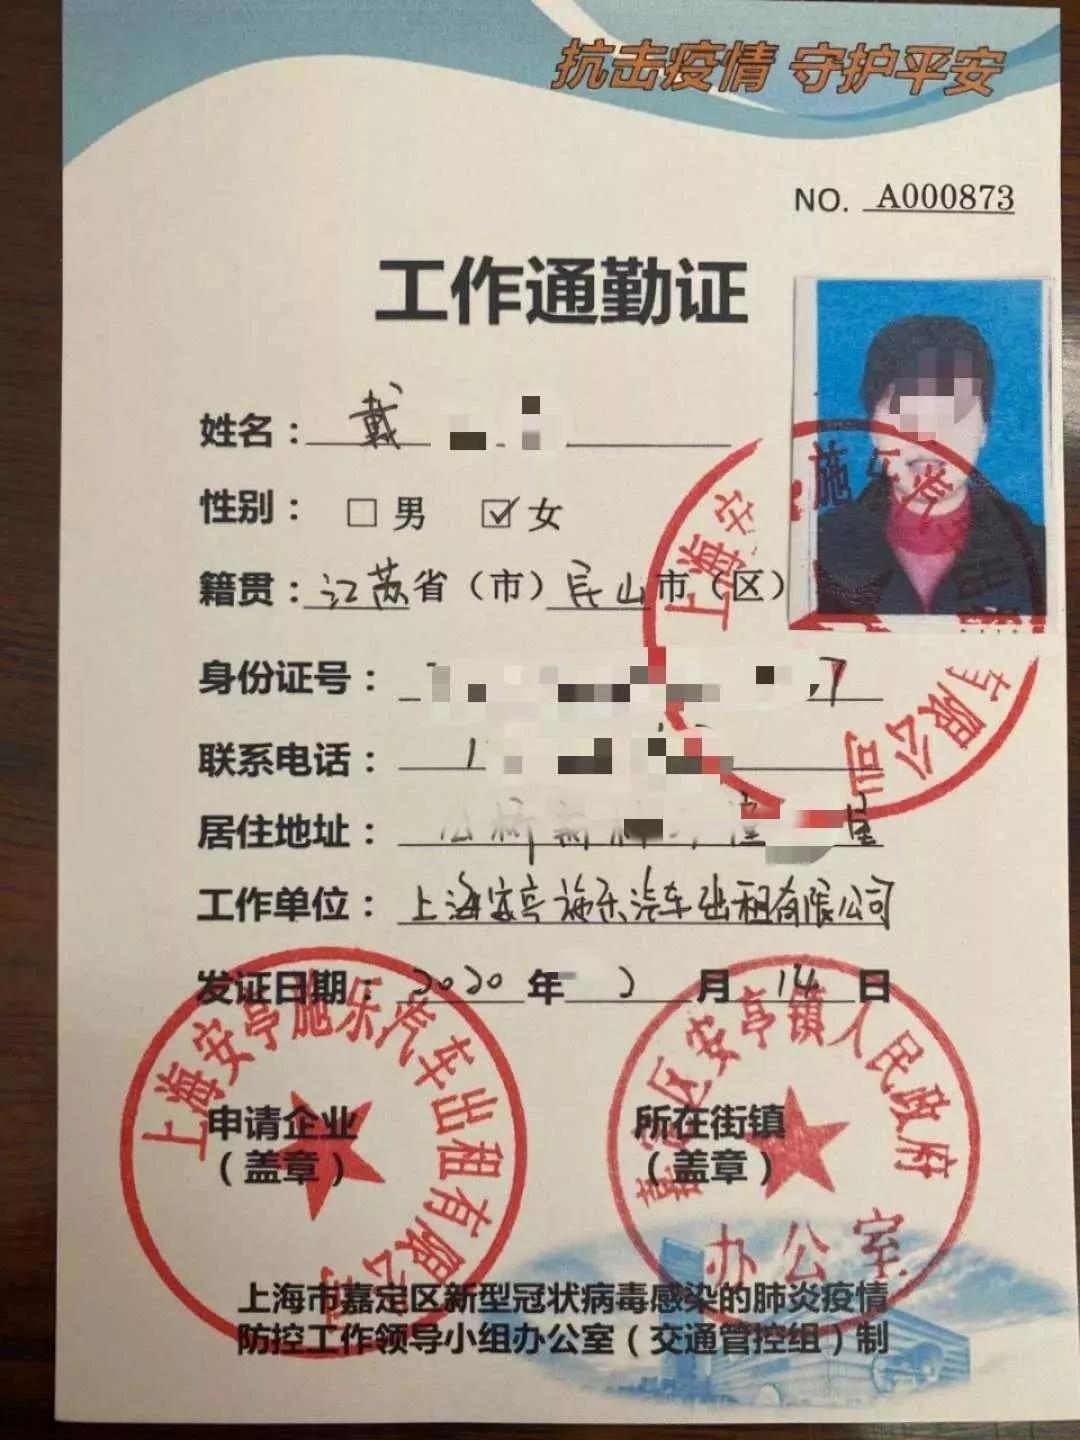 抗击疫情 守护平安
NO. A000873
工作通勤证
姓名：戴
性别：□男 ☑女
籍贯：江苏省（市）昆山市（区）
身份证号：7
联系电话：1
居住地址：
工作单位：上海安亭施乐汽车出租有限公司
发证日期：2020年2月14日
申请企业
（盖章）
所在街镇
（盖章）
上海安亭施乐汽车出租有限公司
嘉定区安亭镇人民政府
办公室
上海安亭施乐汽车出租有限公司
上海市嘉定区新型冠状病毒感染的肺炎疫情
防控工作领导小组办公室（交通管控组）制